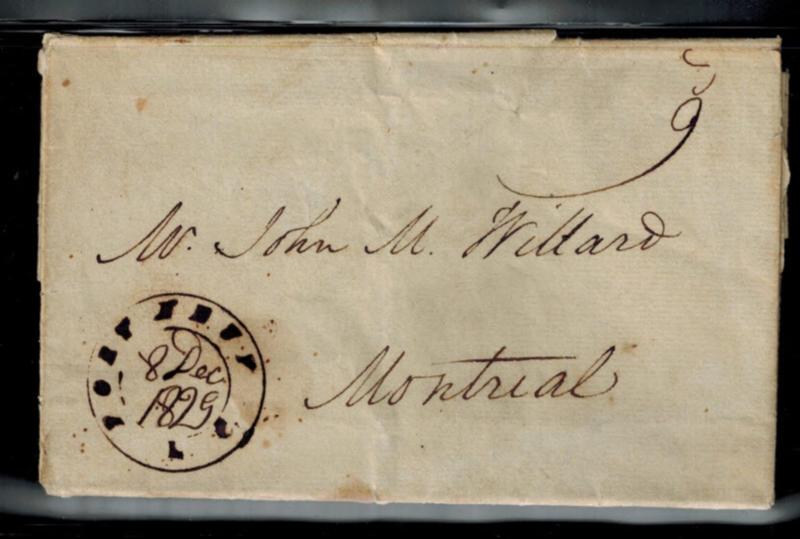 9
Mr. John M. Willard
Montreal
8 Dec
1829
L